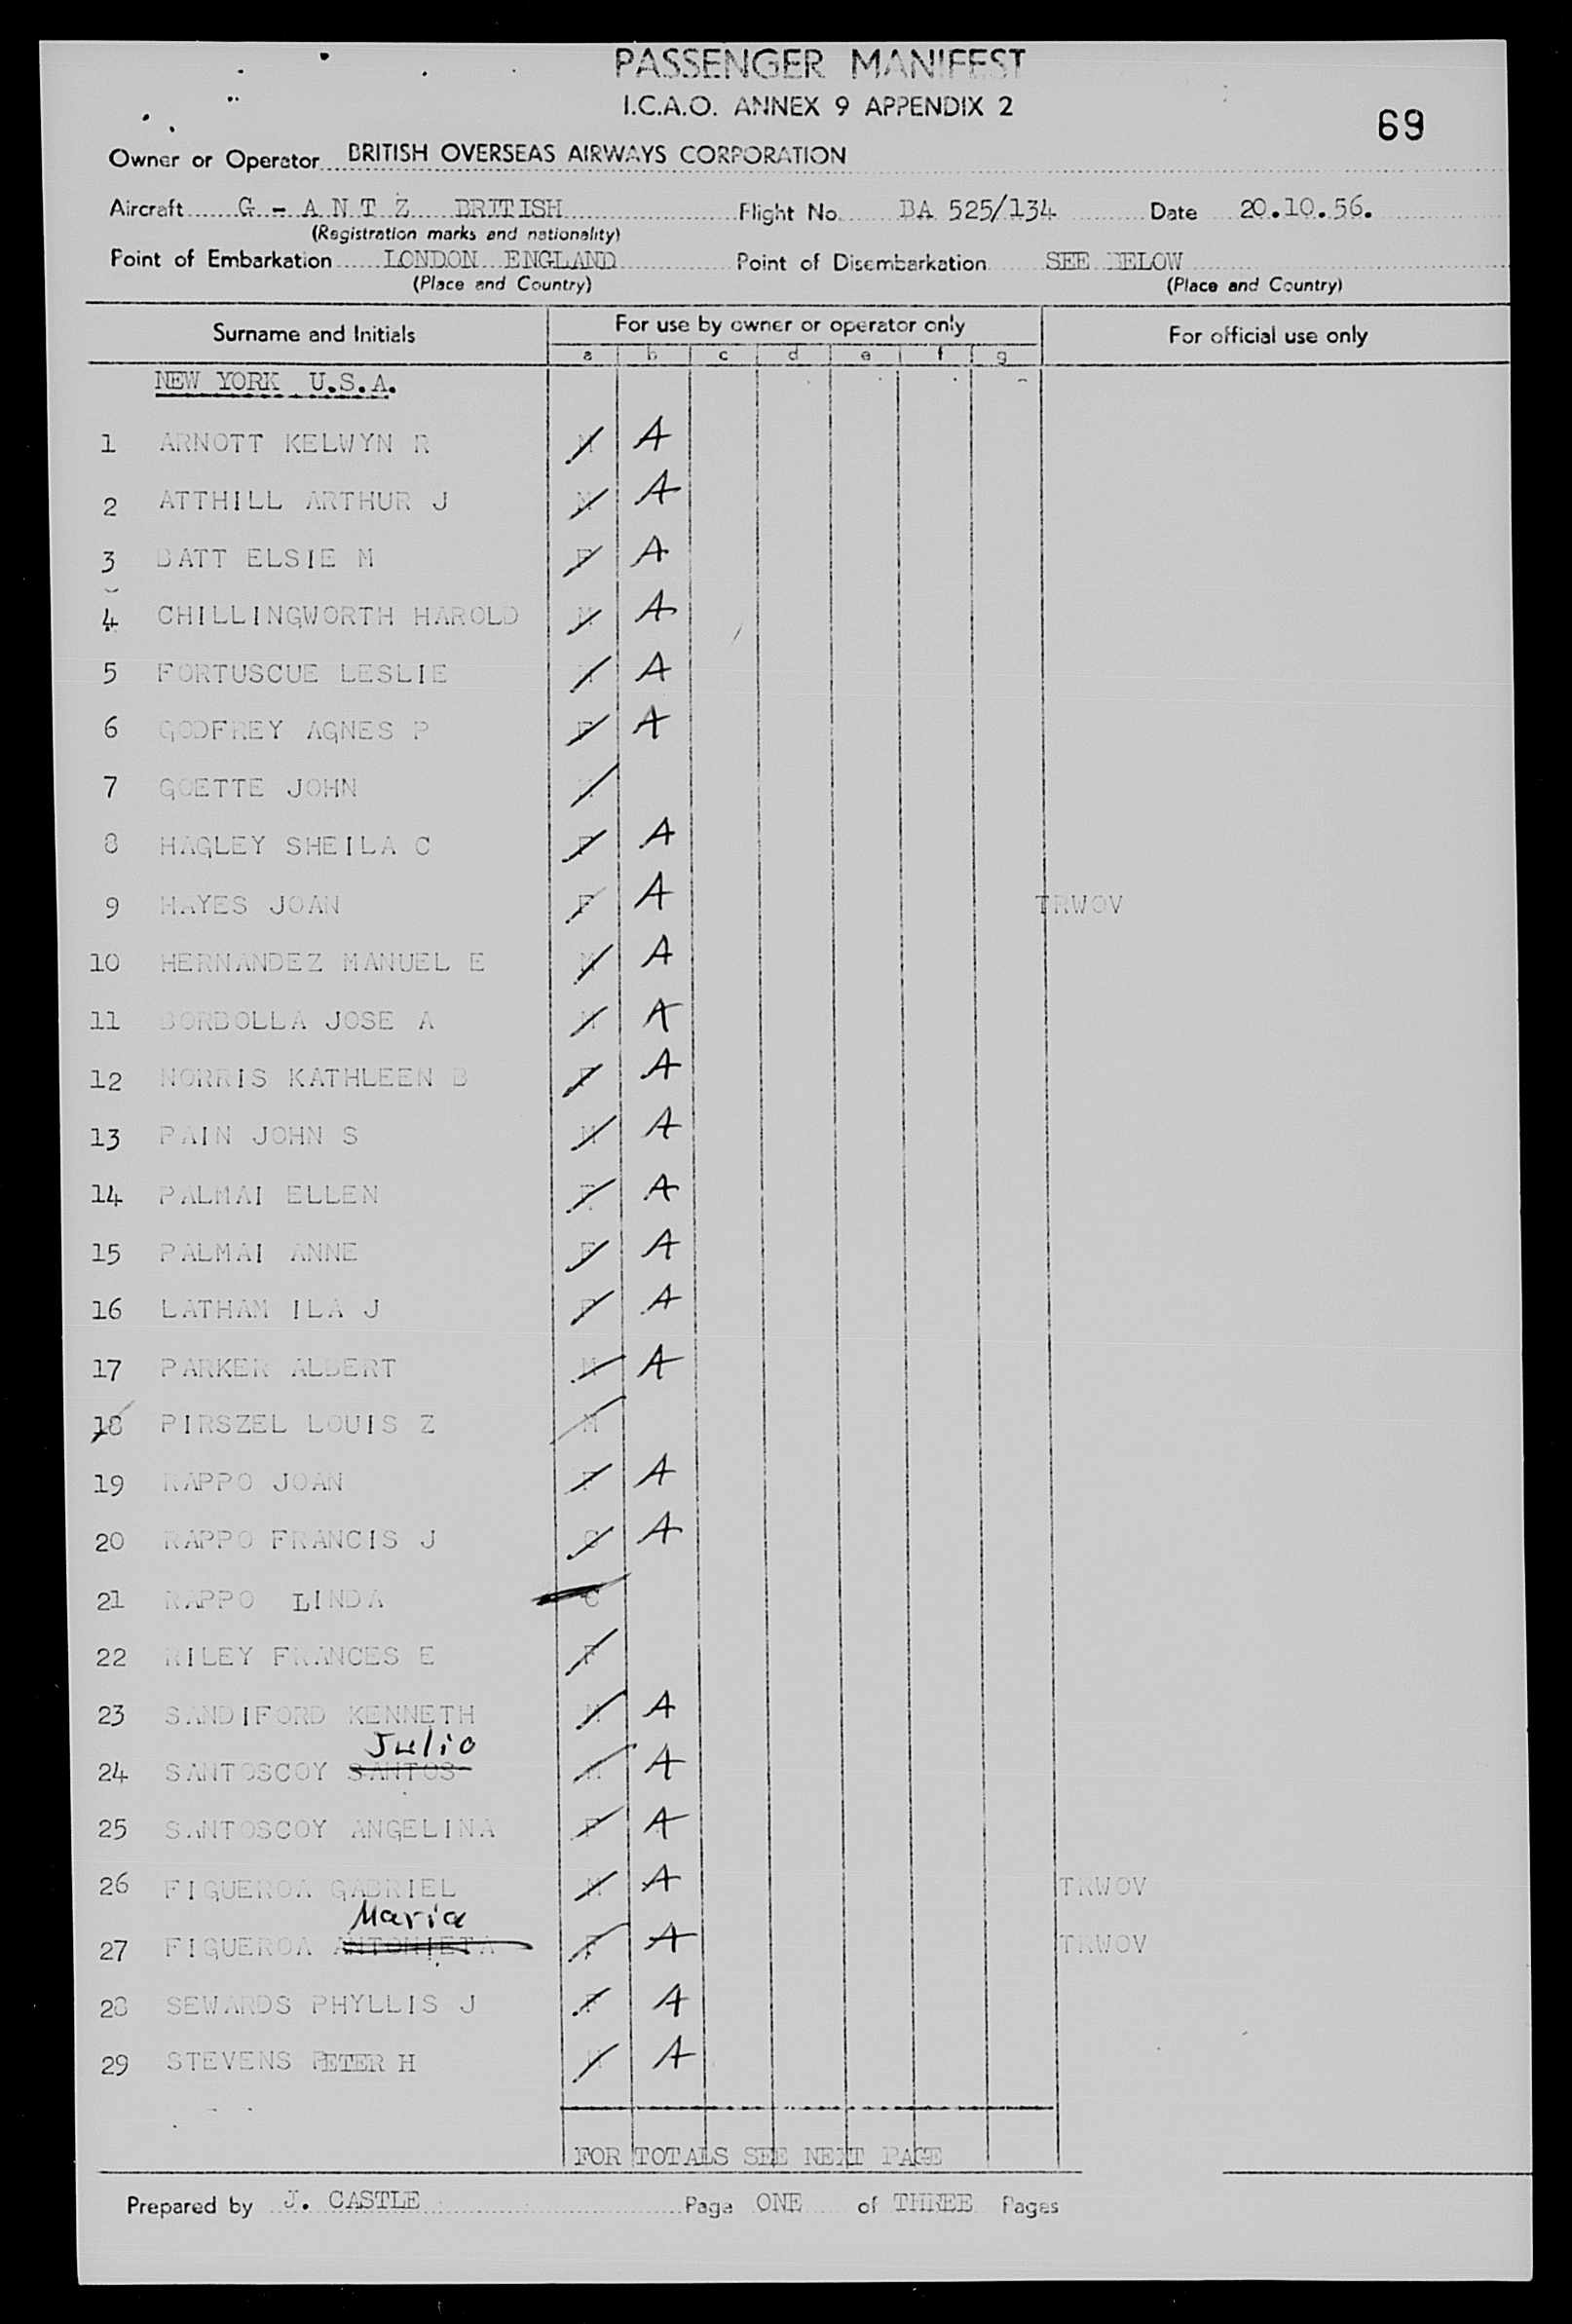 PASSENGER MANIFEST
I.C.A.O. ANNEX 9 APPENDIX 2
69
Owner or Operator BRITISH OVERSEAS AIRWAYS CORPORATION
Aircraft G - A N T Z BRITISH Flight No. BA 525/134 Date 20.10.56.
(Registration marks and nationality)
Point of Embarkation LONDON ENGLAND Point of Disembarkation SEE BELOW
(Place and Country) (Place and Country)
Surname and Initials For use by owner or operator only For official use only
a b c d e f g
NEW YORK U.S.A.
1 ARNOTT KELWYN R M A
2 ATTHILL ARTHUR J M A
3 BATT ELSIE M F A
4 CHILLINGWORTH HAROLD M A
5 FORTUSCUE LESLIE M A
6 GODFREY AGNES P F A
7 GOETTE JOHN M
8 HAGLEY SHEILA C F A
9 HAYES JOAN F A TRWOV
10 HERNANDEZ MANUEL E M A
11 BORBOLLA JOSE A M A
12 NORRIS KATHLEEN B F A
13 PAIN JOHN S M A
14 PALMAI ELLEN F A
15 PALMAI ANNE F A
16 LATHAM ILA J F A
17 PARKER ALBERT M A
18 PIRSZEL LOUIS Z M
19 RAPPO JOAN F A
20 RAPPO FRANCIS J C A
21 RAPPO LINDA C
22 RILEY FRANCES E F
23 SANDIFORD KENNETH M A
Julio
24 SANTOSCOY SANTOS M A
25 SANTOSCOY ANGELINA F A
26 FIGUEROA GABRIEL M A TRWOV
Maria
27 FIGUEROA ANTONIETA F A TRWOV
28 SEWARDS PHYLLIS J F A
29 STEVENS PETER H M A
FOR TOTALS SEE NEXT PAGE
Prepared by J. CASTLE Page ONE of THREE Pages